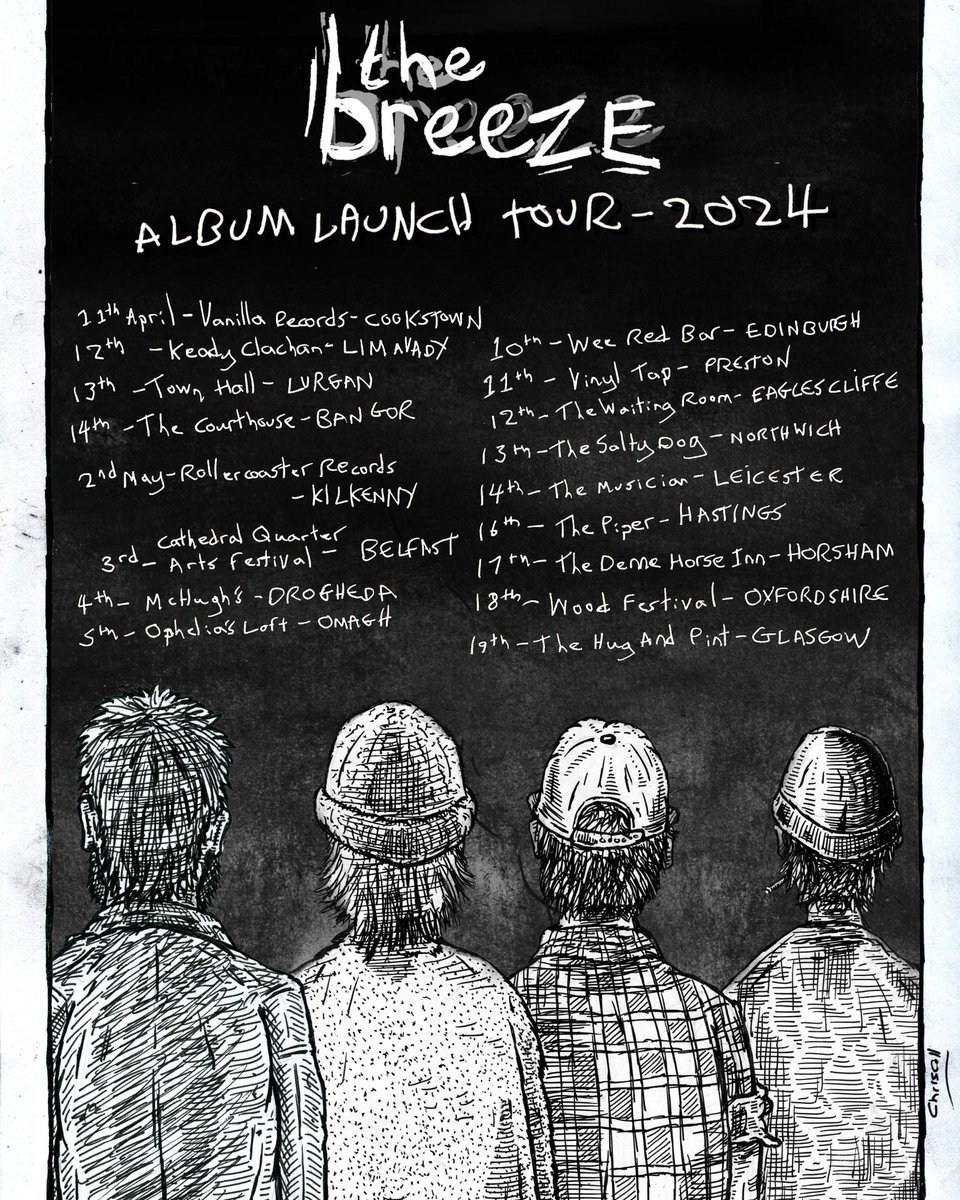 the
breeZE
ALBUM LAUNCH TOUR - 2024
11th April - Vanilla Records - COOKSTOWN
12th - Keady Clachan - LIMAVADY
13th - Town Hall - LURGAN
14th - The Courthouse - BANGOR
2nd May - Rollercoaster Records
- KILKENNY
3rd - Cathedral Quarter
Arts Festival - BELFAST
4th - McHugh's - DROGHEDA
5th - Ophelia's Loft - OMAGH
10th - Wee Red Bar - EDINBURGH
11th - Vinyl Tap - PRESTON
12th - The Waiting Room - EAGLESCLIFFE
13th - The Salty Dog - NORTHWICH
14th - The Musician - LEICESTER
16th - The Piper - HASTINGS
17th - The Denne Horse Inn - HORSHAM
18th - Wood Festival - OXFORDSHIRE
19th - The Hug And Pint - GLASGOW